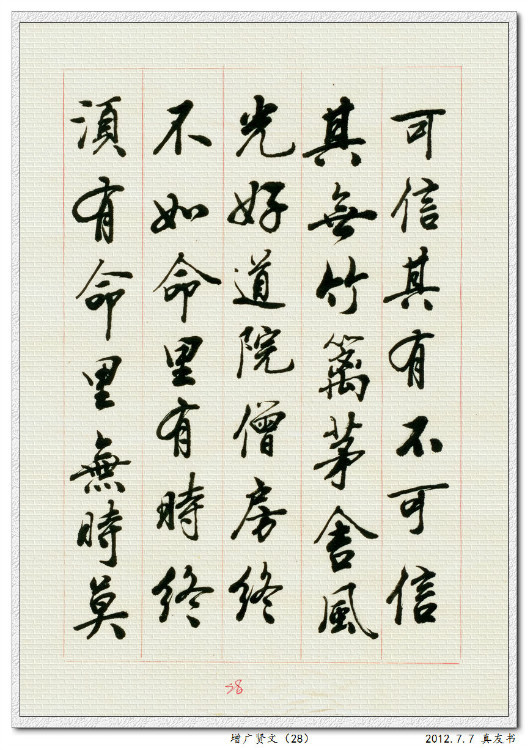 可信其有不可信
其無竹籬茅舍風
光好道院僧房終
不如命里有時終
須有命里無時莫
28
增广贤文（28）
2012.7.7 真友书